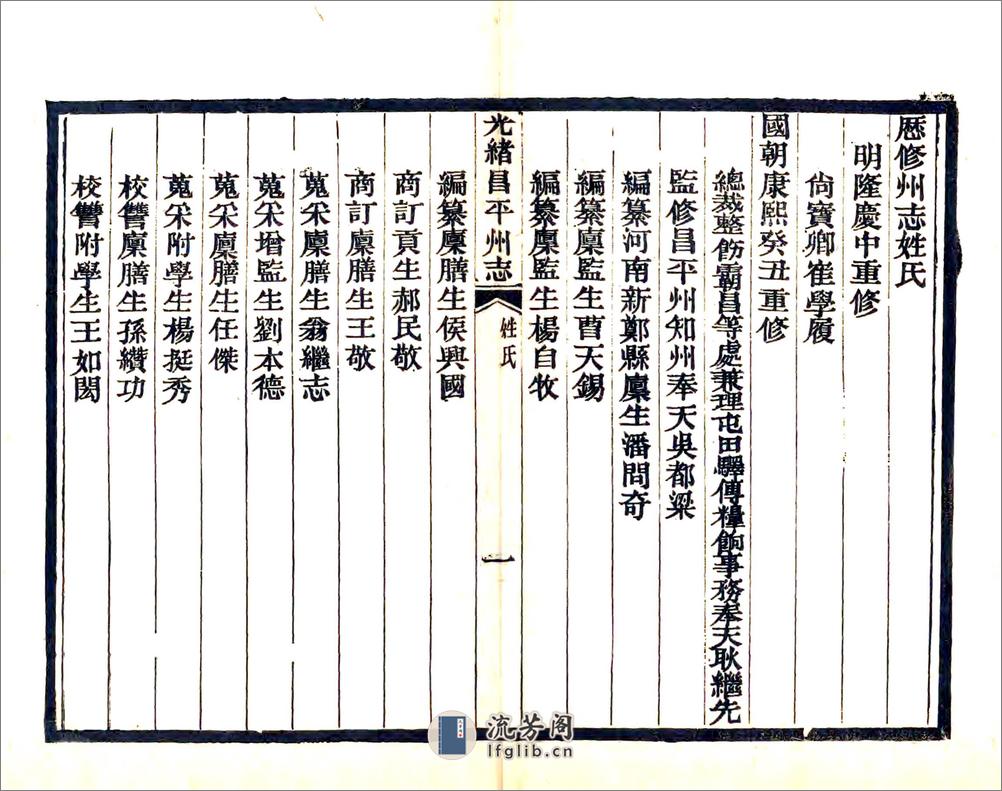 歷修州志姓氏
明隆慶中重修
尚寶卿崔學履
國朝康熙癸丑重修
總裁整飭霸昌等處兼理屯田驛傳糧餉事務奉天耿繼先
監修昌平州知州奉天吳都梁
編纂河南新鄭縣廩生潘問奇
編纂廩監生曹天錫
編纂廩監生楊自牧
光緒昌平州志 姓氏 一
編纂廩膳生侯興國
商訂貢生郝民敬
商訂廩膳生王敬
蒐采廩膳生翁繼志
蒐采增監生劉本德
蒐采廩膳生任傑
蒐采附學生楊挺秀
校讐廩膳生孫纘功
校讐附學生王如閎
流芳阁
lfglib.cn